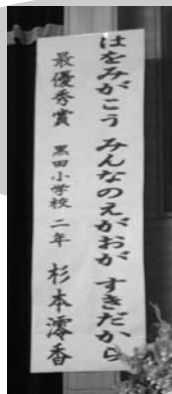 はをみがこう みんなのえがおが すきだから
最優秀賞 黒田小学校 二年 杉本澪香